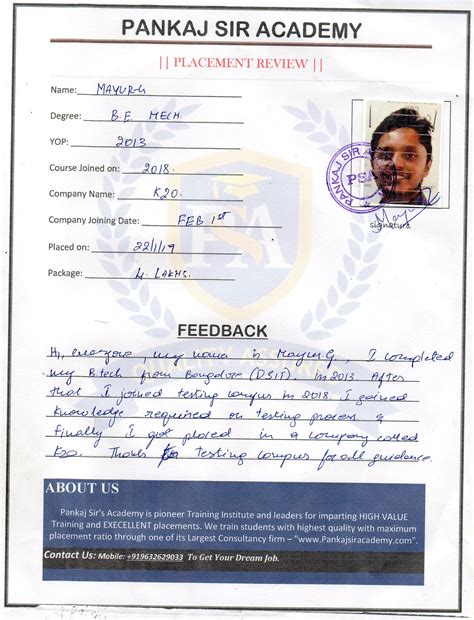 PANKAJ SIR ACADEMY
|| PLACEMENT REVIEW ||
Name: MAYUR.G
Degree: B.E. MECH.
YOP: 2013
Course Joined on: 2018.
Company Name: K20.
Company Joining Date: FEB 1st
Placed on: 22/1/19
Package: 4 LAKHS.
PANKAJ SIR
PSA
signature
FEEDBACK
Hi, everyone, my name is Mayur G, I completed
my B.tech from Bangalore (DSIT). in 2013. After
that I joined testing campus in 2018. I gained
knowledge required on testing process &
finally I got placed in a company called
K20. Thanks testing campus for all guidance.
ABOUT US
Pankaj Sir's Academy is pioneer Training Institute and leaders for imparting HIGH VALUE
Training and EXCELLENT placements. We train students with highest quality with maximum
placement ratio through one of its Largest Consultancy firm – "www.Pankajsiracademy.com".
Contact Us: Mobile: +919632629033 To Get Your Dream Job.